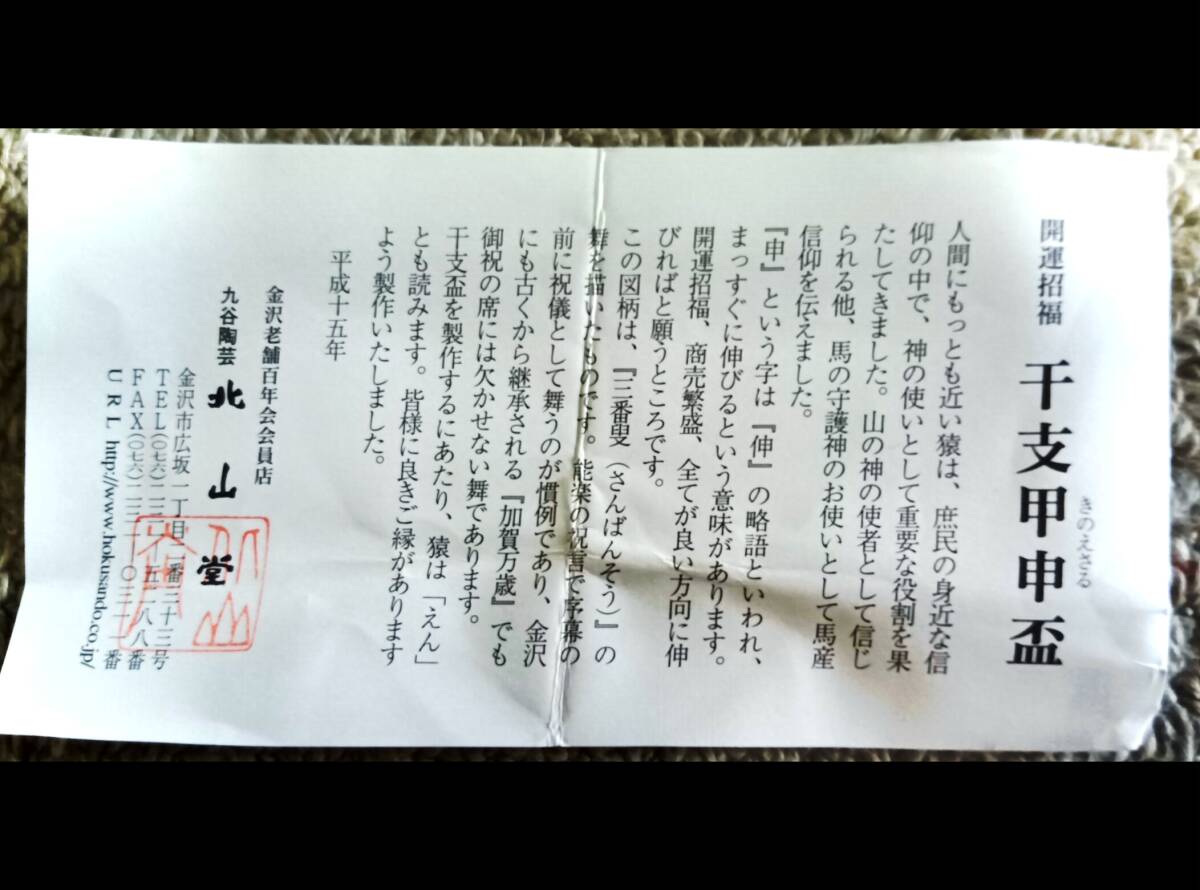 開運招福 干支甲申盃
きのえさる
人間にもっとも近い猿は、庶民の身近な信
仰の中で、神の使いとして重要な役割を果
たしてきました。山の神の使者として信じ
られる他、馬の守護神のお使いとして馬産
信仰を伝えました。
『申』という字は『伸』の略語といわれ、
まっすぐに伸びるという意味があります。
開運招福、商売繁盛、全てが良い方向に伸
びればと願うところです。
この図柄は、『三番叟（さんばんそう）』の
舞を描いたものです。能楽の祝言で序幕の
前に祝儀として舞うのが慣例であり、金沢
にも古くから継承される『加賀万歳』でも
御祝の席には欠かせない舞であります。
干支盃を製作するにあたり、猿は「えん」
とも読みます。皆様に良きご縁があります
よう製作いたしました。
平成十五年
金沢老舗百年会会員店
九谷陶芸 北山堂
金沢市広坂一丁目二番三十三号
TEL(〇七六)二三一-五二八八番
FAX(〇七六)二三一-〇三一一番
URL http://www.hokusando.co.jp/